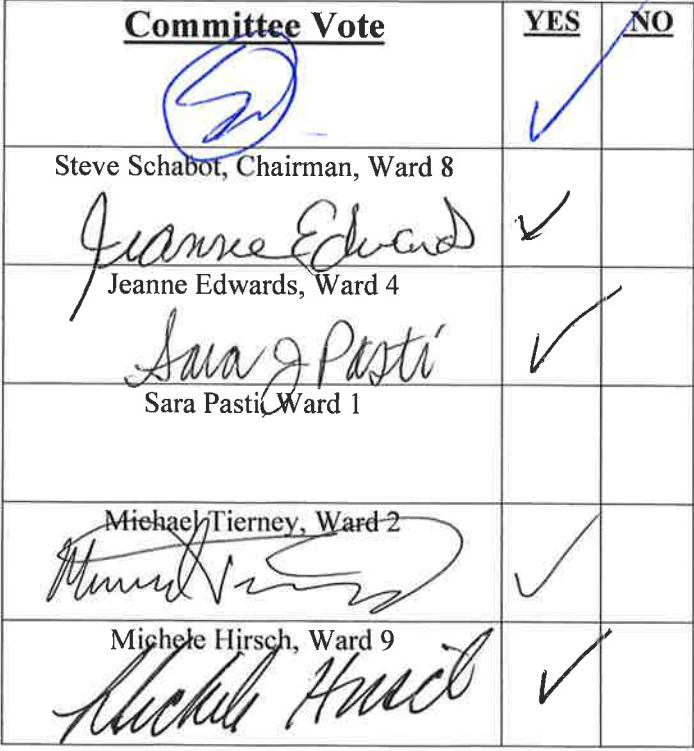 Committee Vote YES NO
Steve Schabot, Chairman, Ward 8
Jeanne Edwards
Jeanne Edwards, Ward 4
Sara J Pasti
Sara Pasti, Ward 1
Michael Tierney, Ward 2
Michele Hirsch, Ward 9
Michele Hirsch